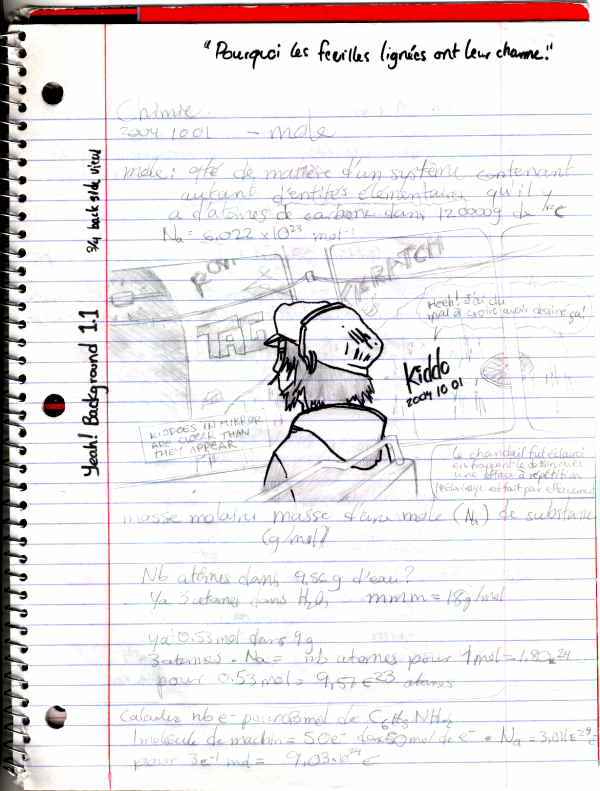 "Pourquoi les feuilles lignées ont leur charme."
Chimie
2004 10 01 - mole
mole: qté de matière d'un système contenant
autant d'entités élémentaires qu'il y
a d'atomes de carbone dans 12.0000g de
Na = 6,022 x 10²³ mol⁻¹
3/4 back side view
Yeah! Background 1.1
SCRATCH
TAG
Heeh! J'ai du
mal à croire avoir dessiné ça!
Kiddo
2004 10 01
KIDDOES IN MIRROR
ARE CLOSER THAN
THEY APPEAR
Le chandail fut éclairci
en frappant le dessin avec
une efface à répétition
masse molaire: masse d'une mole (Na) de substance
(g/mol)
Nb atomes dans 9,56g d'eau?
Ya 3 atomes dans H₂O, mmm = 18g/mol
ya 0.53 mol dans 9g
3 atomes · Na = nb atomes pour 1 mol = 1.80
pour 0.53 mol = 9,57 E23 atomes
Calculez nb e⁻ pour 3 mol de
1 molécule de machin = 50e⁻ mol de e⁻ · Na =
pour 3 mol = 9,03